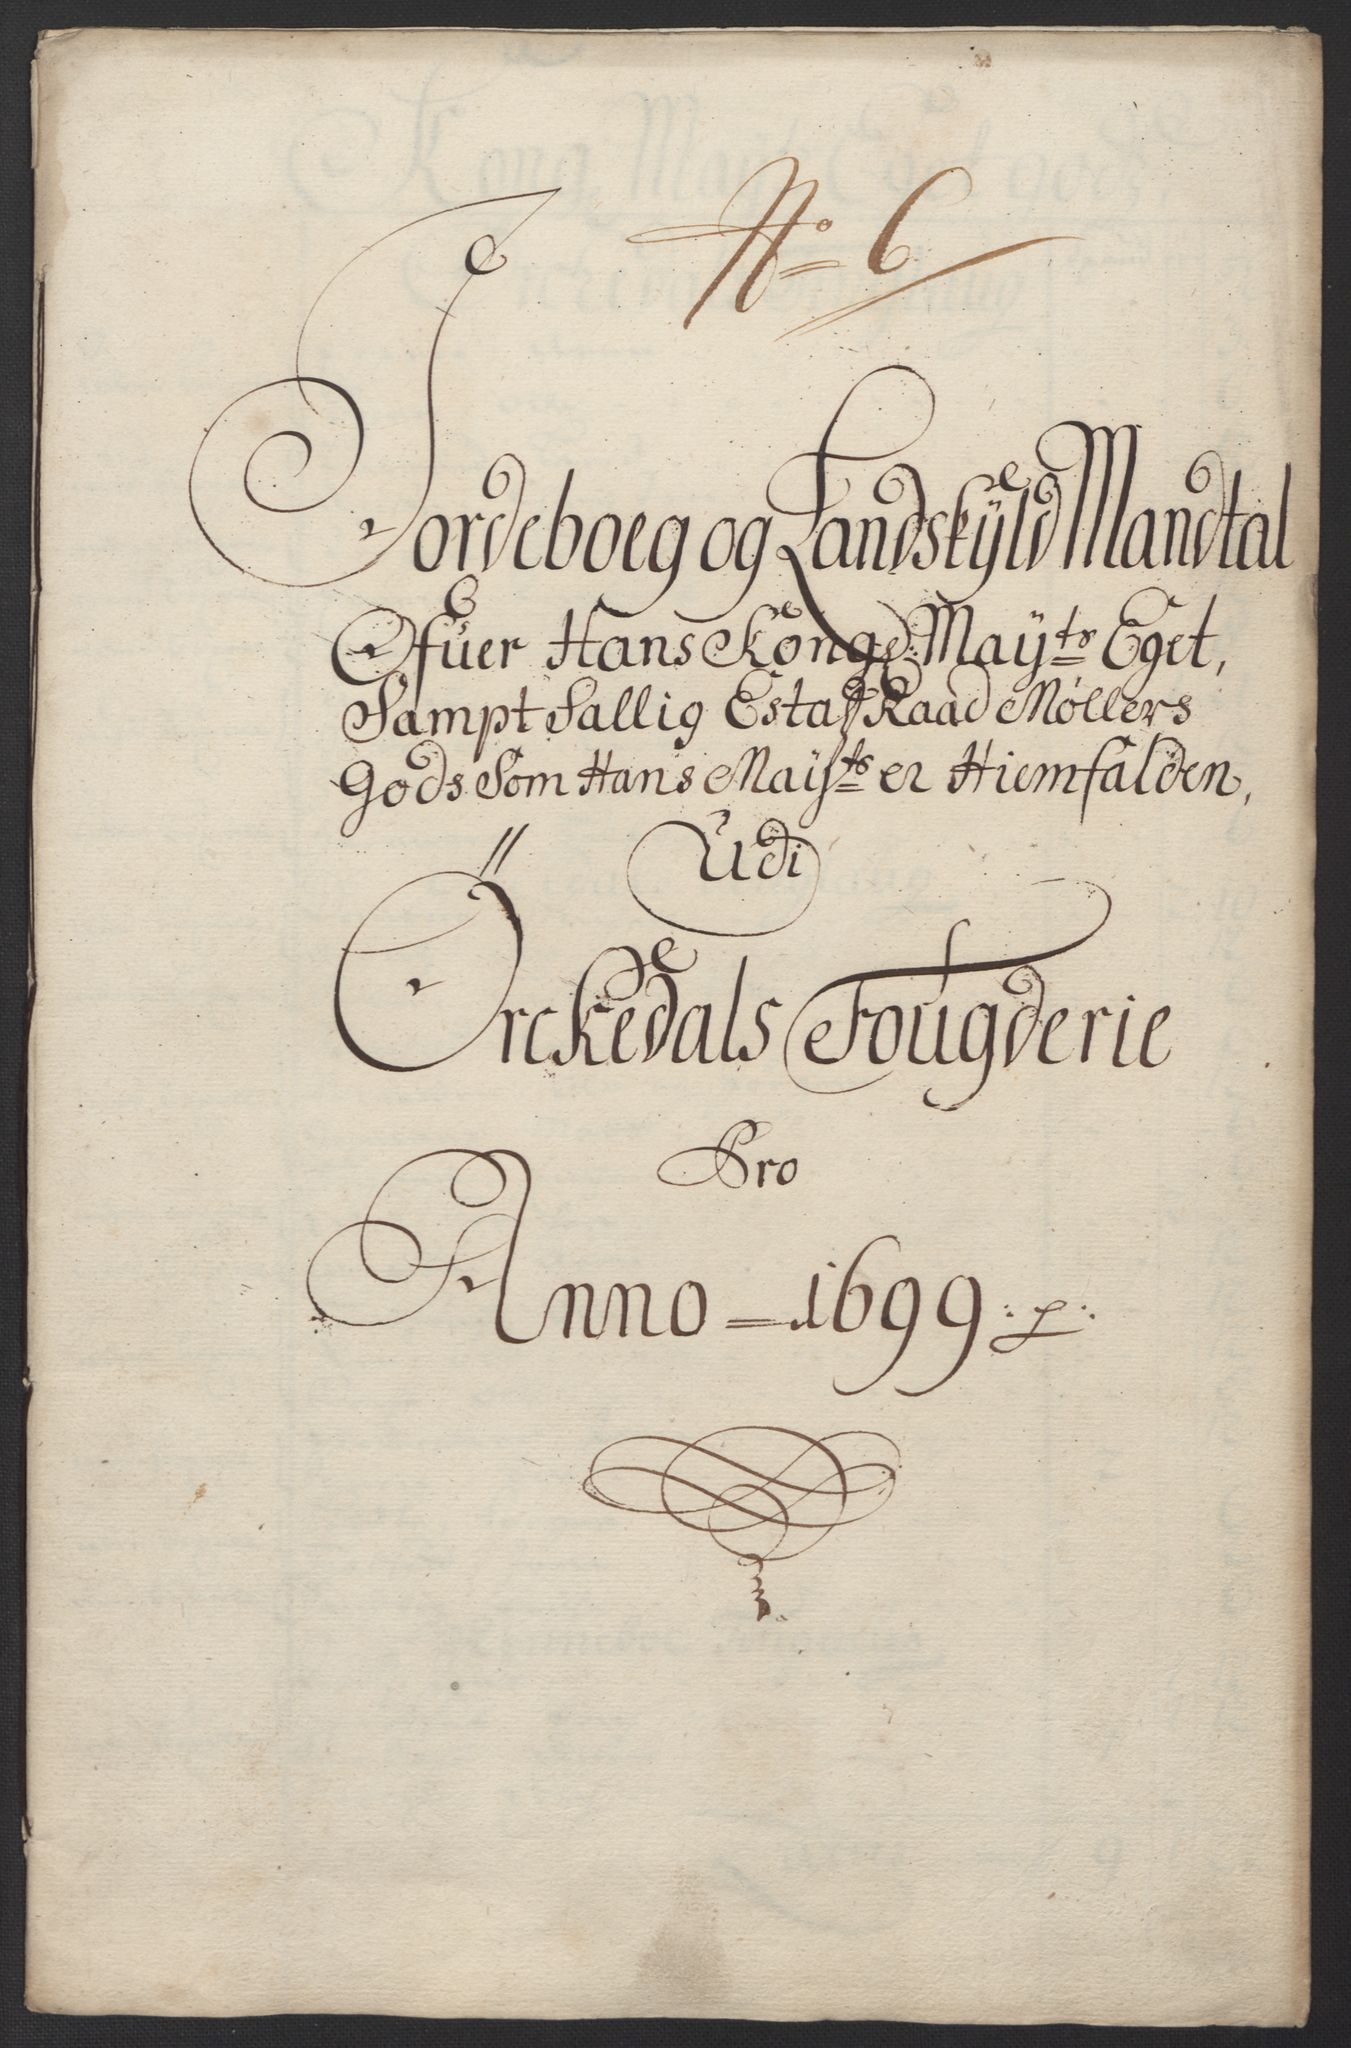 No 6
Jordeboeg og Landskÿld Mandtal
Ofuer Hans Konge: Maÿts Eget,
Sampt Sallig Estatz Raad Møllers
Gods Som Hans Maÿts er Hiemfalden,
Udi
Örckedals Fougderie
Pro
Anno = 1699